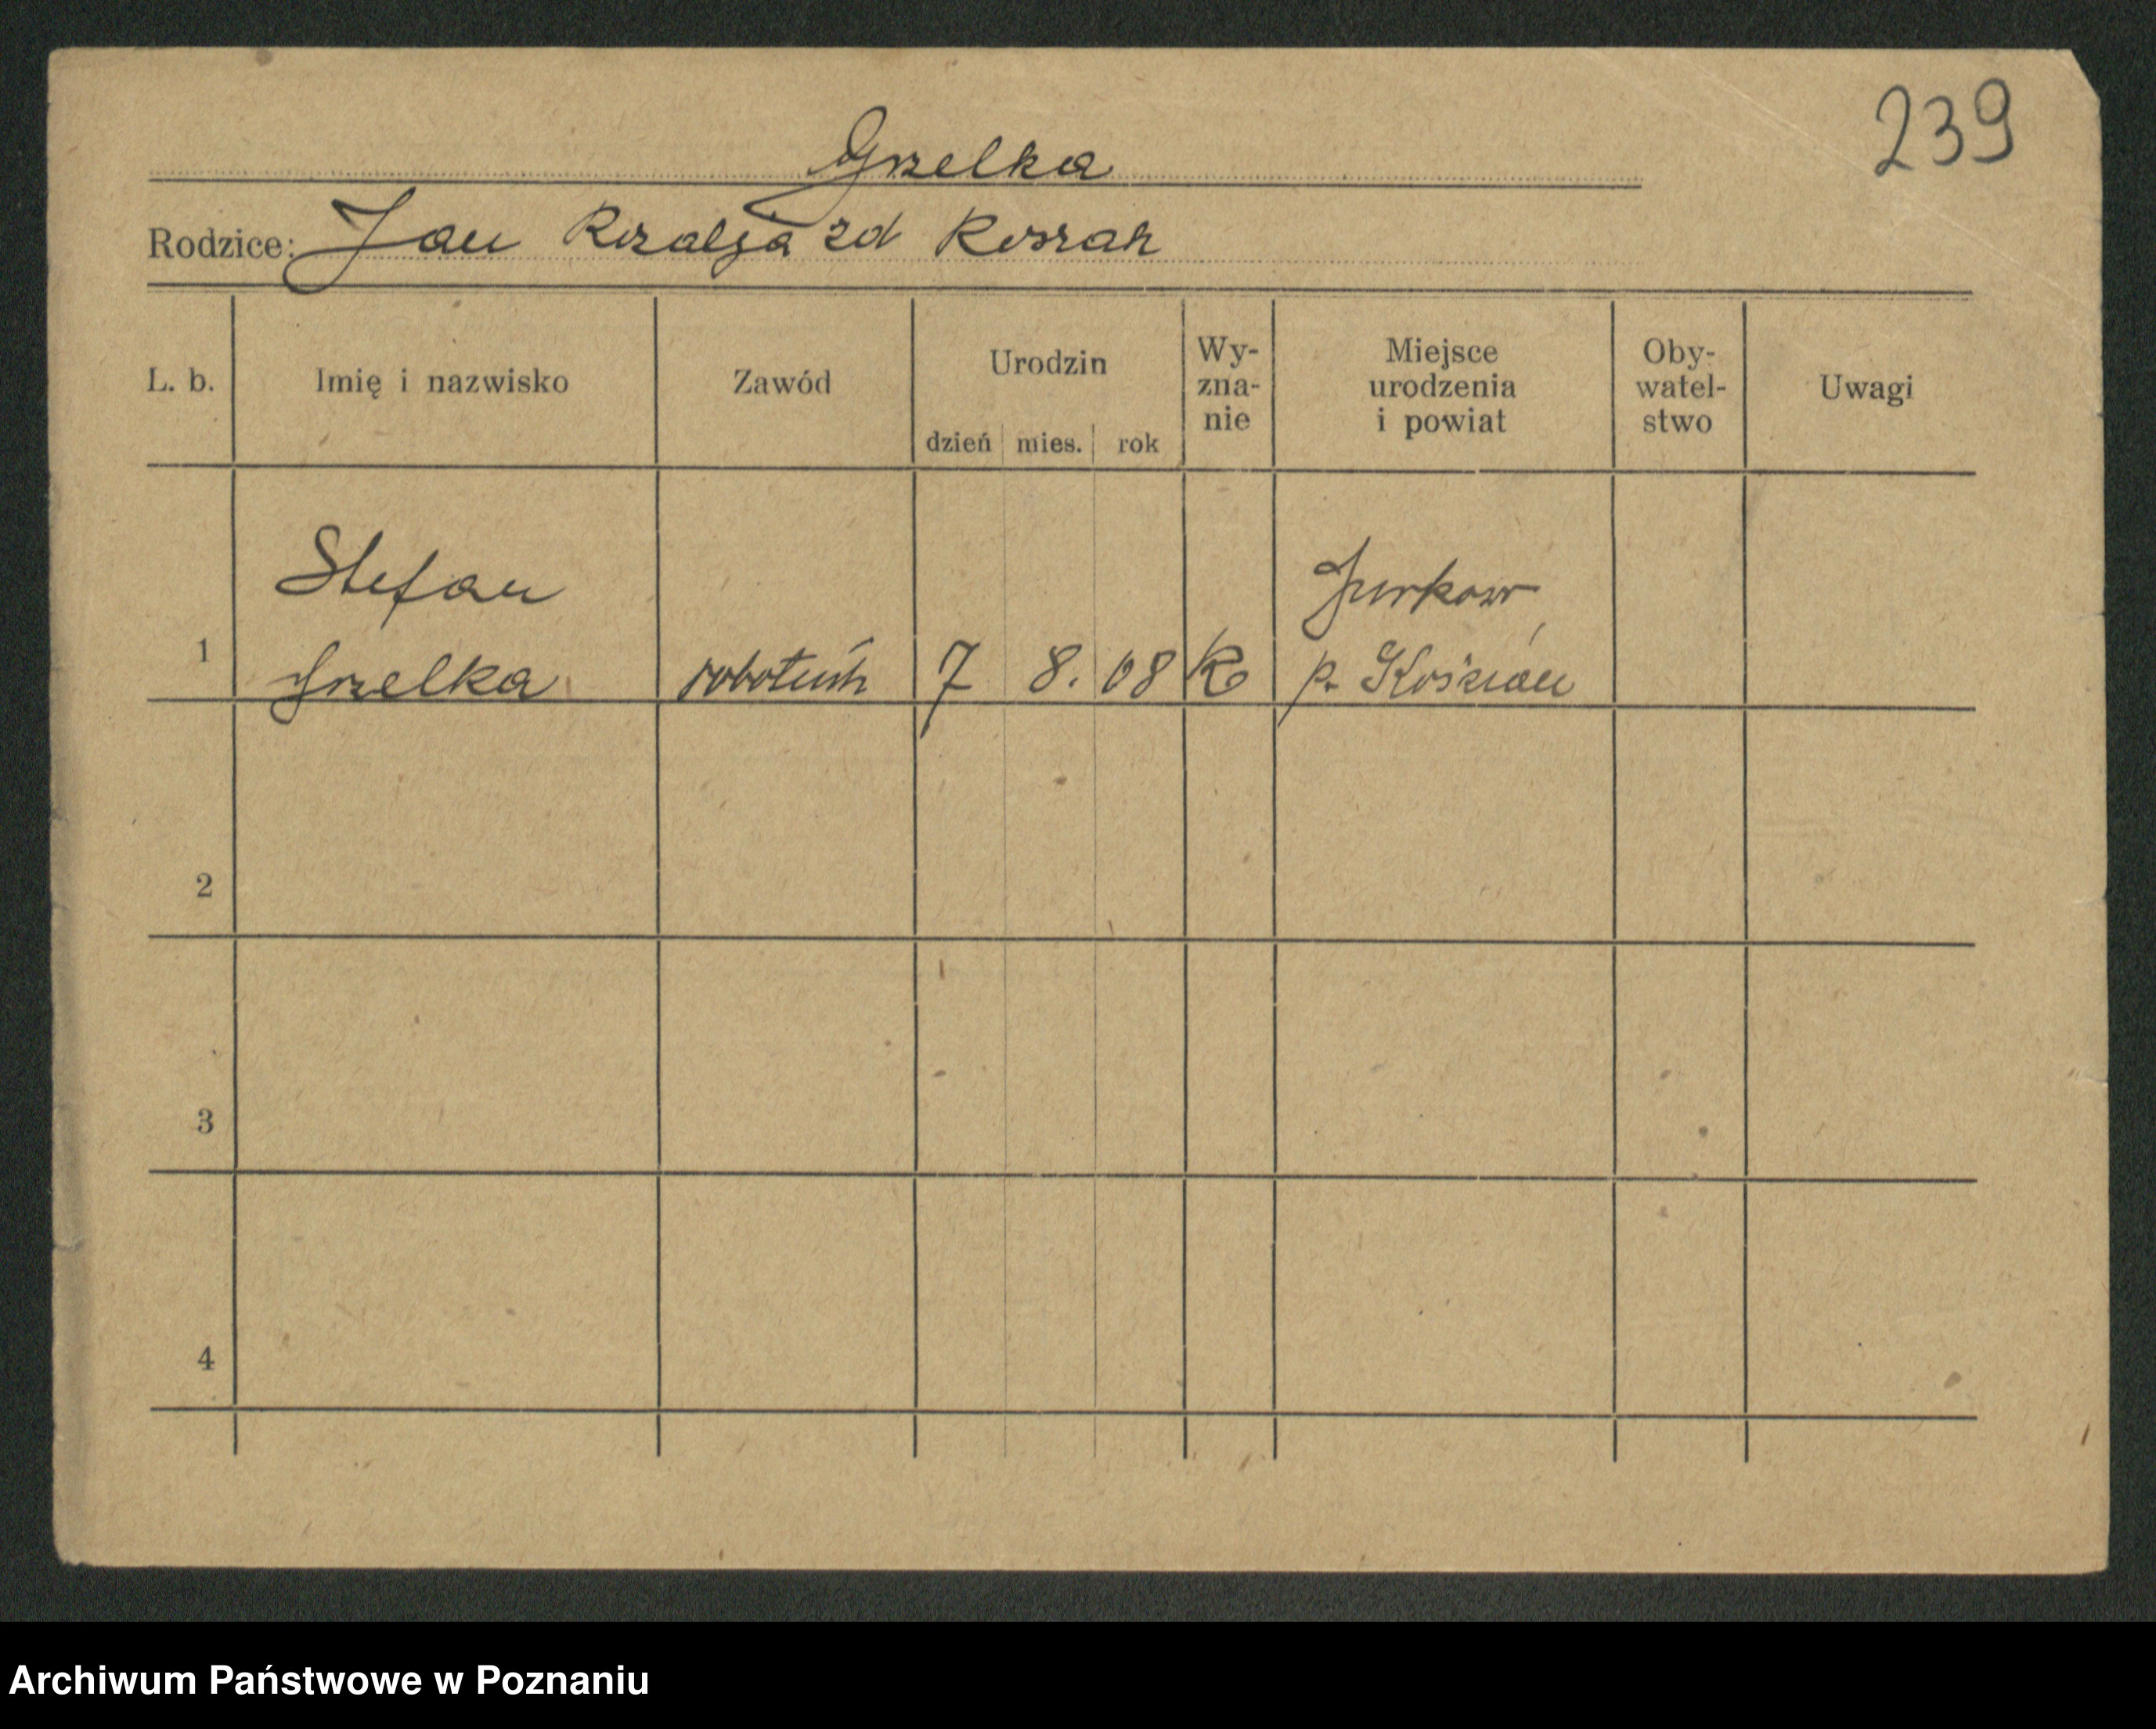 239
Grzelka
Rodzice: Jan Rozalja zd Koszak
L. b. Imię i nazwisko Zawód Urodzin dzień mies. rok Wy-zna-nie Miejsce urodzenia i powiat Oby-watel-stwo Uwagi
Stefan Jurkowo
1 Grzelka robotnik 7 8. 08 K p. Kościan
2
3
4
Archiwum Państwowe w Poznaniu